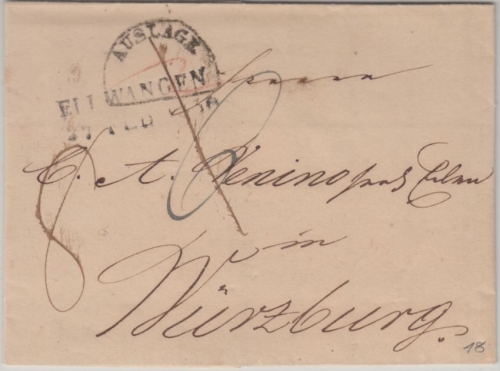 AUSLAGE
ELLWANGEN
27 FEB
Herrn
C. A. Venino
in
Würzburg.
18